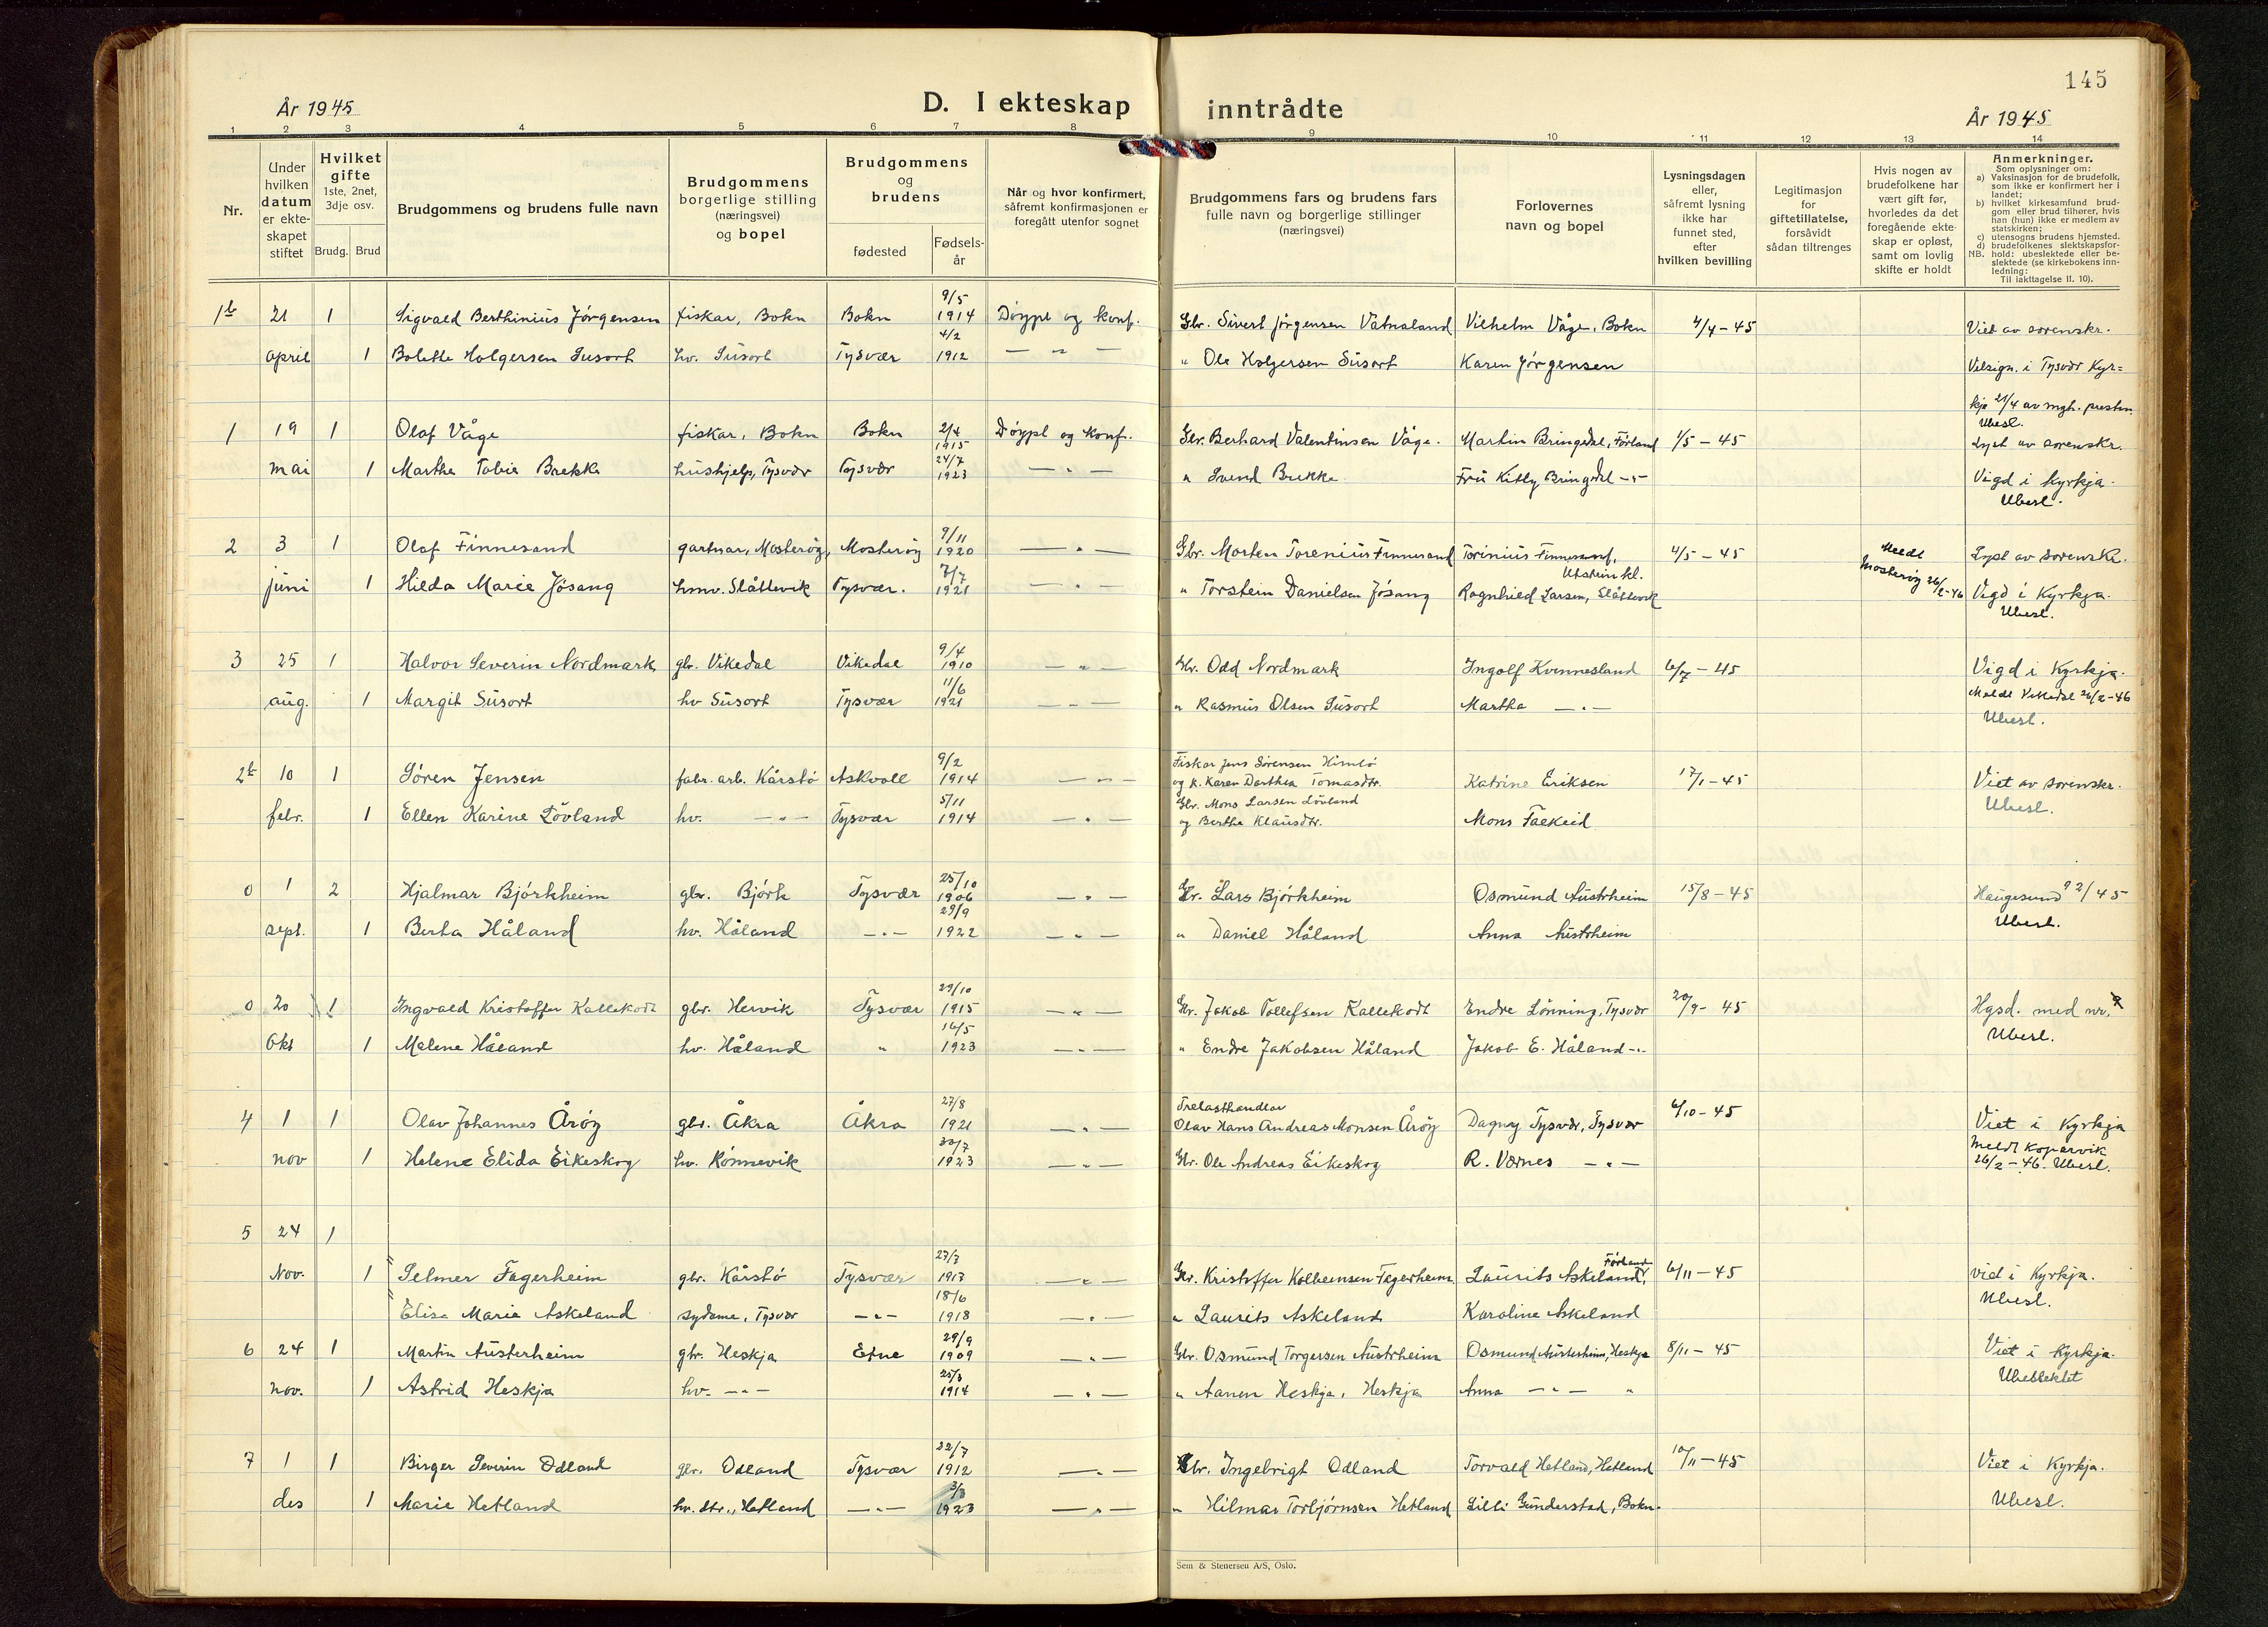 145
År 1945
D. I ekteskap inntrådte
År 1945
1 2 3 4 5 6 7 8 9 10 11 12 13 14
Nr.
Under
hvilken
datum
er ekte-
skapet
stiftet
Hvilket
gifte
1ste, 2net,
3dje osv.
Brudg. Brud
Brudgommens og brudens fulle navn
Brudgommens
borgerlige stilling
(næringsvei)
og bopel
Brudgommens
og
brudens
fødested
Fødsels-
år
Når og hvor konfirmert,
såfremt konfirmasjonen er
foregått utenfor sognet
Brudgommens fars og brudens fars
fulle navn og borgerlige stillinger
(næringsvei)
Forlovernes
navn og bopel
Lysningsdagen
eller,
såfremt lysning
ikke har
funnet sted,
efter
hvilken bevilling
Legitimasjon
for
giftetillatelse,
forsåvidt
sådan tiltrenges
Hvis nogen av
brudefolkene har
vært gift før,
hvorledes da det
foregående ekte-
skap er opløst,
samt om lovlig
skifte er holdt
Anmerkninger.
Som oplysninger om:
a) Vaksinasjon for de brudefolk,
som ikke er konfirmert her i
landet;
b) hvilket kirkesamfund brud-
gom eller brud tilhører, hvis
han (hun) ikke er medlem av
statskirken;
c) utensogns brudens hjemsted.
d) brudefolkenes slektskapsfor-
NB. hold: ubeslektede eller be-
slektede (se kirkebokens inn-
ledning:
Til iakttagelse II. 10).
1b 21 1 Sigvald Berthinius Jørgensen fiskar, Bokn Bokn 9/5 1914 Døypt og konf. Gbr. Sivert Jørgensen Vatnaland Vilhelm Våge, Bokn 4/4-45 Viet av sorenskr.
april 1 Bolette Holgersen Susort hv. Susort Tysvær 4/2 1912 — " — " Ole Holgersen Susort Karen Jørgensen Velsign. i Tysvær Kyr=
kja 21/4 av mgh. presten
Ubesl.
1 19 1 Olaf Våge fiskar, Bokn Bokn 2/4 1915 Døypt og konf. Gbr. Berhard Valentinsen Våge. Martin Bringedal, Førland 1/5-45 Lyst av sorenskr.
mai 1 Martha Tobia Brekke hushjelp, Tysvær Tysvær 24/7 1923 — " — " Svend Brekke Fru Kitty Bringedal -"- Vigd i Kyrkja.
Ubesl.
2 3 1 Olaf Finnesand gartnar, Mosterøy, Mosterøy 9/11 1920 — " — Gbr. Morten Torenius Finnesand Torinius Finnesand, Utstein kl. 4/5-45 Meldt Mosterøy 26/2-46 Lyst av sorenskr.
juni 1 Hilda Marie Jøsang hmv. Slåttevik Tysvær. 7/7 1921 — " — " Torstein Danielsen Jøsang Ragnhild Larsen, Slåttevik Vigd i Kyrkja.
Ubesl.
3 25 1 Halvor Severin Nordmark gbr. Vikedal Vikedal 9/4 1910 — " — Gbr. Odd Nordmark Ingolf Kvinnesland 6/7-45 Vigd i Kyrkja.
aug. 1 Margit Susort hv Susort Tysvær 11/6 1921 — " — " Rasmus Olsen Susort Martha — " — Meldt Vikedal 26/2-46
Ubesl.
2b 10 1 Søren Jensen fabr. arb. Kårstø Askvoll 9/2 1914 — " — Fiskar Jens Sørensen Himlø
og k. Karen Dorthea Tomasdtr. Katrine Eriksen 17/1-45 Viet av sorenskr.
febr. 1 Ellen Karine Løvland hv. — " — Tysvær 5/11 1914 — " — Gbr. Mons Larsen Løvland
og Bertha Klausdtr. Mons Falkeid Ubesl.
0 1 2 Hjalmar Bjørkheim gbr. Bjørk Tysvær 25/10 1906 — " — Gbr. Lars Bjørkheim Osmund Austrheim 15/8-45 Haugesund 92/45
sept. 1 Berta Håland hv. Håland — " — 29/9 1922 — " — " Daniel Håland Anna Austrheim Ubesl.
0 20 1 Ingvald Kristoffer Kallekodt gbr. Hervik Tysvær 29/10 1915 — " — Gbr. Jakob Tollefsen Kallekodt Endre Lønning, Tysvær 20/9-45 Hgsd. med nr.
Okt 1 Malene Håland hv. Håland " 16/5 1923 — " — " Endre Jakobsen Håland Jakob E. Håland -"- Ubesl.
4 1 1 Olav Johannes Årøy gbr. Åkra Åkra 27/8 1921 — " — Trelasthandlar
Olav Hans Andreas Monsen Årøy Dagny Tysvær, Tysvær 6/10-45 Viet i Kyrkja
nov 1 Helene Elida Eikeskog hv. Rønnevik 30/7 1923 — " — Gbr. Ole Andreas Eikeskog R. Værnes — " — Meldt Kopervik
26/2-46. Ubesl.
5 24 1
Nov. 1 Selmer Fagerheim gbr. Kårstø Tysvær 27/7 1913 — " — Gbr. Kristoffer Kolbeinsen Fagerheim Laurits Askeland, Førland 6/11-45 vid i Kyrkja.
Elise Marie Askeland sydame, Tysvær — " — 18/6 1918 — " — " Laurits Askeland Karoline Askeland Ubesl.
6 24 1 Martin Austerheim gbr. Heskja Etne 29/9 1909 — " — Gbr. Osmund Torgersen Austrheim Osmund Austerheim, Heskja 8/11-45 Viet i Kyrkja.
nov. 1 Astrid Heskja hv. — " — 25/3 1914 — " — " Aanen Heskja, Heskja Anna — " — " Ubeslektet
7 1 1 Birger Severin Odland gbr. Odland Tysvær 22/7 1912 — " — Gbr. Ingebrigt Odland Torvald Hetland, Hetland 10/11-45 Viet i Kyrkja.
des 1 Marie Hetland hv. dtr., Hetland — " — 3/3 1923 — " — " Hilmar Torbjørnsen Hetland Lilli Gunderstad, Bokn. Ubesl.
Sem & Stenersen A/S, Oslo.